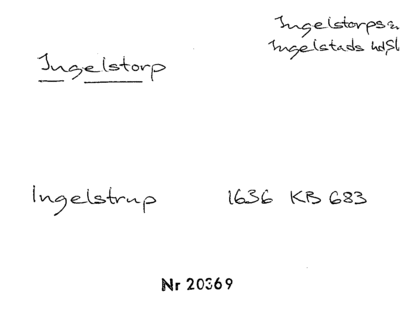 Ingelstorps sn
Ingelstads hd Sk
Ingelstorp
Ingelstrup 1636 KB 683
Nr 20369